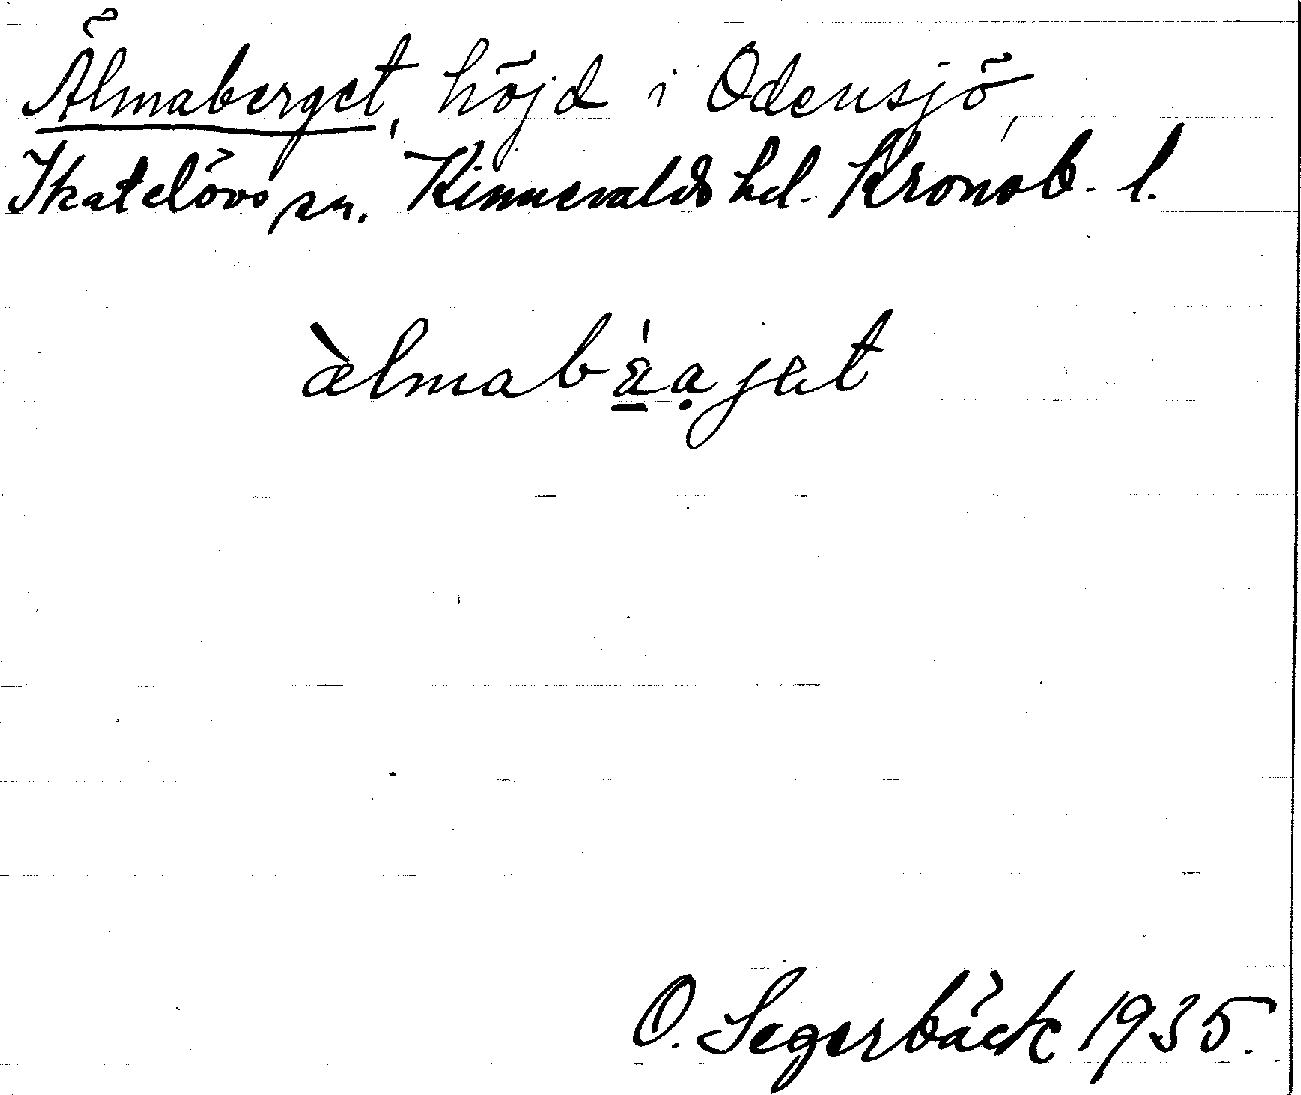 Älmaberget, höjd i Odensjö,
Skatelövs sn. Kinnevalds hd. Kronob. l.
àlmabáa̤jat
O. Segerbäck 1935.